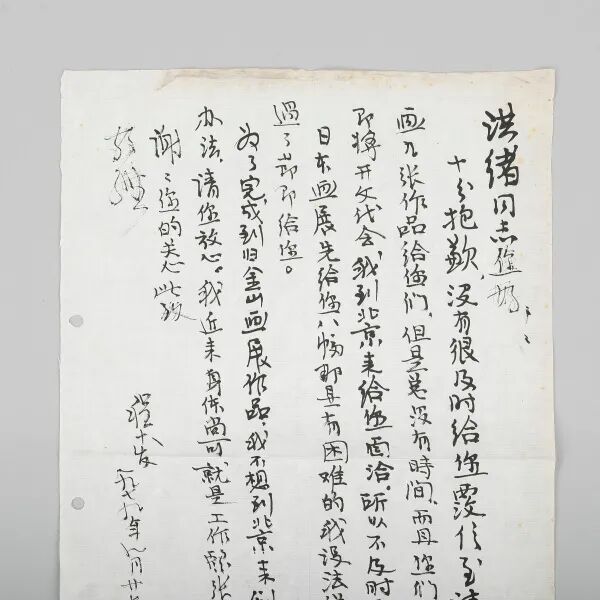 洪绪同志您好
十分抱歉,没有很及时给您覆信至
画几张作品给你们,但是总没有時间,而且你们
即将开文代会,我到北京来给您面洽,所以不及时
日本画展先给您八幅那是有困难的我设法
過了节即给您。
为了完成到旧金山画展作品,我不想到北京来
办法,请您放心。我近来身体尚可就是工作
谢谢您的关心此致
敬礼
程十发
一九七九年八月廿